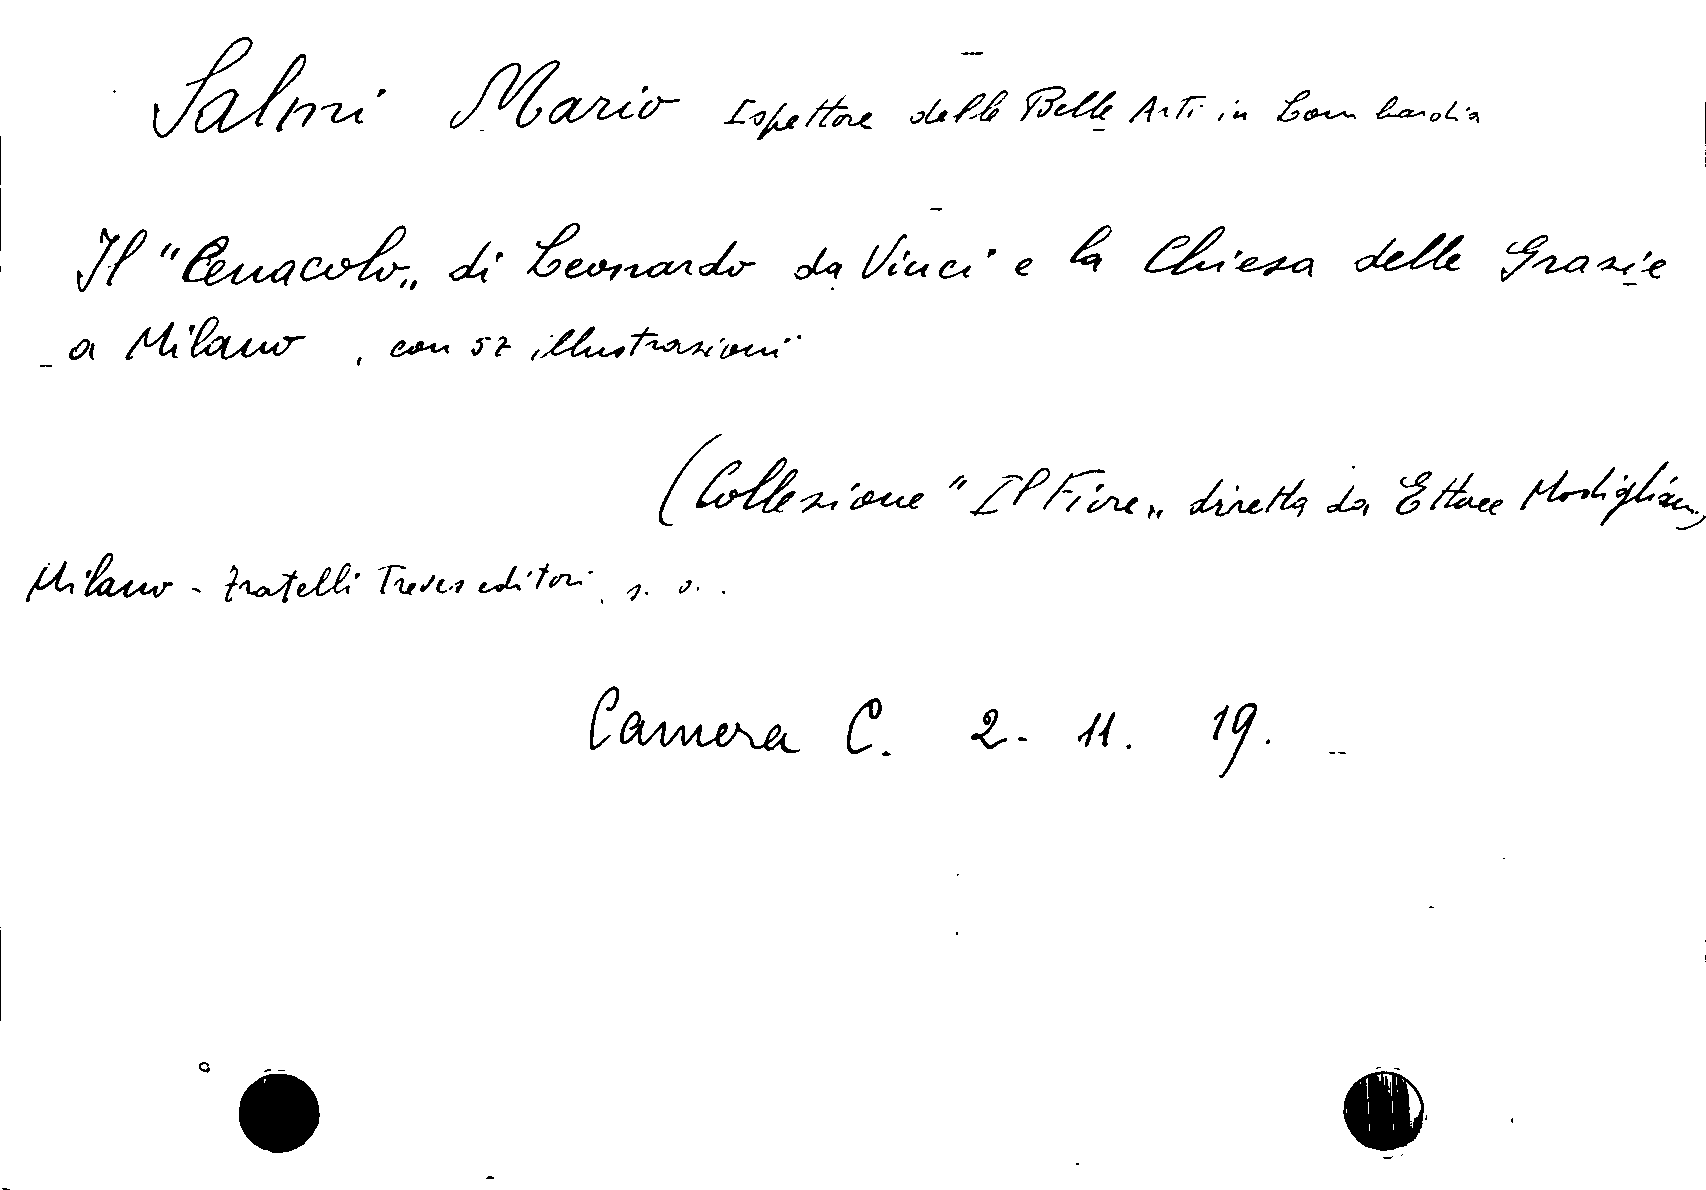 Salmi Mario Ispettore delle Belle Arti in Lombardia
Il "Cenacolo„ di Leonardo da Vinci e la Chiesa delle Grazie
a Milano, con 57 illustrazioni
(Collezione "Il Fiore„ diretta da Ettore Modigliani)
Milano - Fratelli Treves editori, s. a.
Camera C. 2. 11. 19.